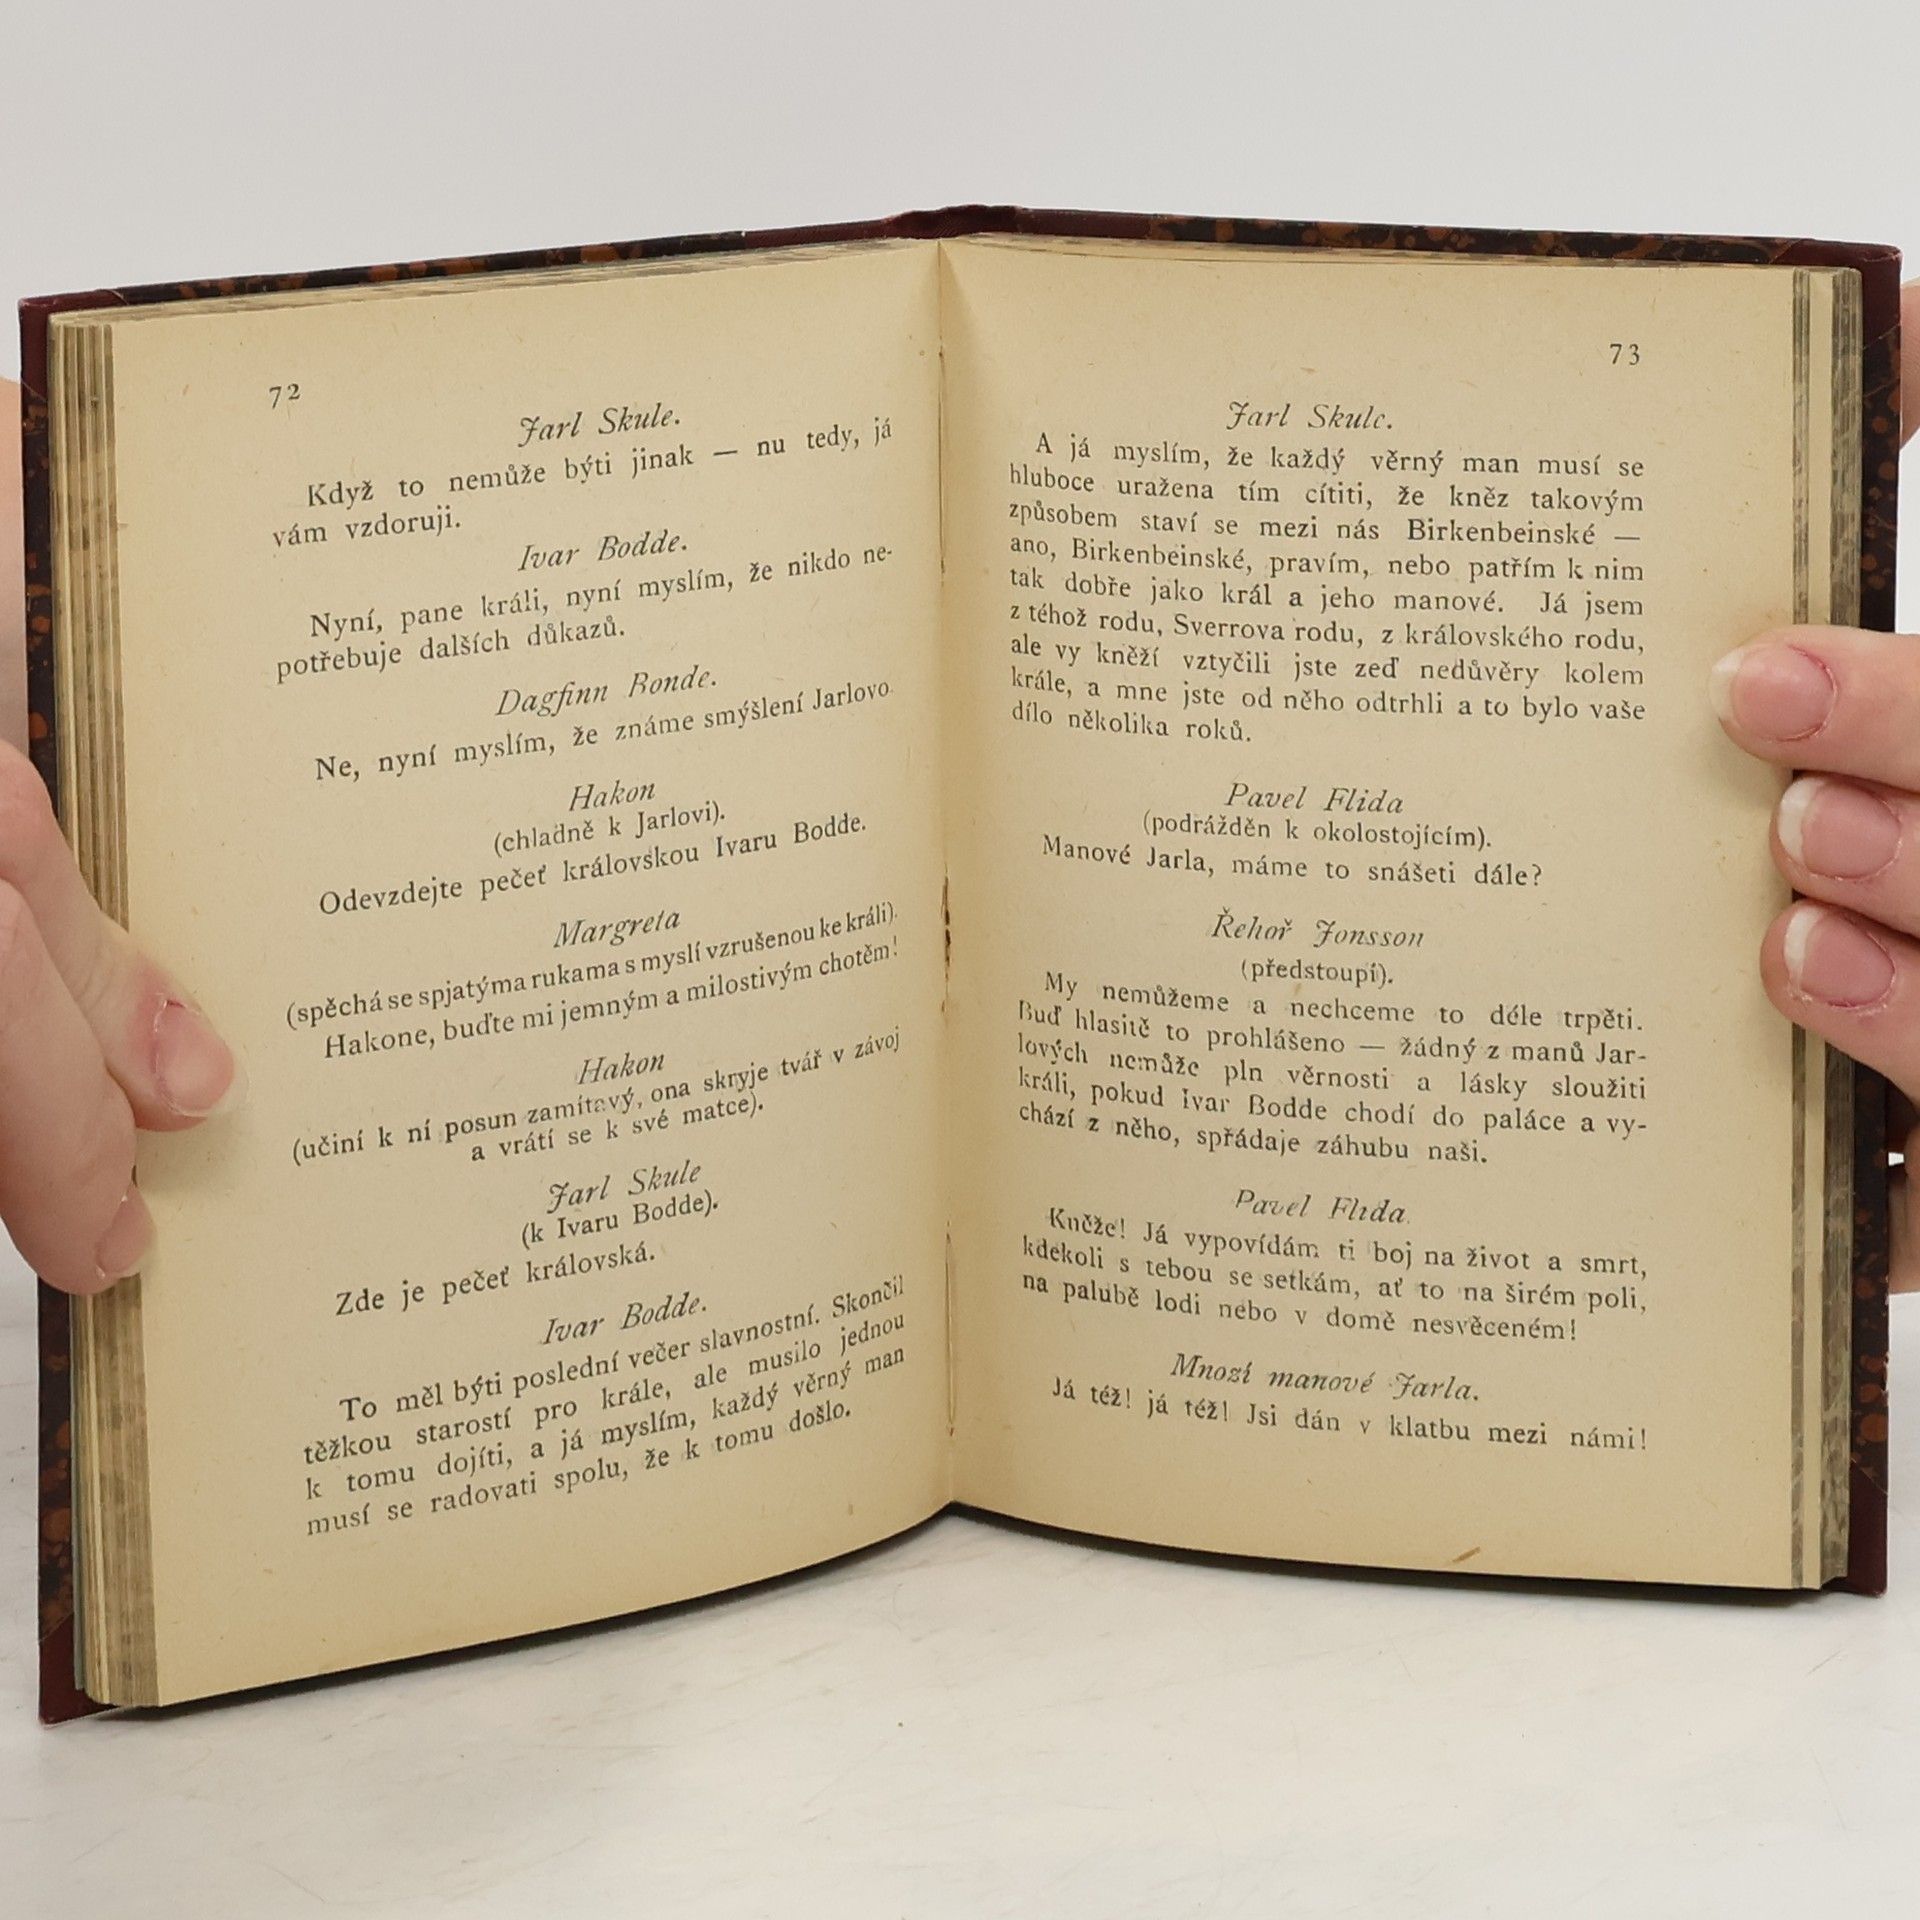 72
Jarl Skule.
Když to nemůže býti jinak — nu tedy, já
vám vzdoruji.
Ivar Bodde.
Nyní, pane králi, nyní myslím, že nikdo ne-
potřebuje dalších důkazů.
Dagfinn Bonde.
Ne, nyní myslím, že známe smýšlení Jarlovo
Hakon
(chladně k Jarlovi).
Odevzdejte pečeť královskou Ivaru Bodde.
Margreta
(spěchá se spjatýma rukama s myslí vzrušenou ke králi).
Hakone, buďte mi jemným a milostivým chotěm!
Hakon
(učiní k ní posun zamítavý, ona skryje tvář v závoj
a vrátí se k své matce).
Jarl Skule
(k Ivaru Bodde).
Zde je pečeť královská.
Ivar Bodde.
To měl býti poslední večer slavnostní. Skončil
těžkou starostí pro krále, ale musilo jednou
k tomu dojíti, a já myslím, každý věrný man
musí se radovati spolu, že k tomu došlo.
73
Jarl Skule.
A já myslím, že každý věrný man musí se
hluboce uražena tím cítiti, že kněz takovým
způsobem staví se mezi nás Birkenbeinské —
ano, Birkenbeinské, pravím, nebo patřím k nim
tak dobře jako král a jeho manové. Já jsem
z téhož rodu, Sverrova rodu, z královského rodu,
ale vy kněží vztyčili jste zeď nedůvěry kolem
krále, a mne jste od něho odtrhli a to bylo vaše
dílo několika roků.
Pavel Flida
(podrážděn k okolostojícím).
Manové Jarla, máme to snášeti dále?
Řehoř Jonsson
(předstoupí).
My nemůžeme a nechceme to déle trpěti.
Buď hlasitě to prohlášeno — žádný z manů Jar-
lových nemůže pln věrnosti a lásky sloužiti
králi, pokud Ivar Bodde chodí do paláce a vy-
chází z něho, spřádaje záhubu naši.
Pavel Flida.
Kněže! Já vypovídám ti boj na život a smrt,
kdekoli s tebou se setkám, ať to na širém poli,
na palubě lodi nebo v domě nesvěceném!
Mnozí manové Jarla.
Já též! já též! Jsi dán v klatbu mezi námi!